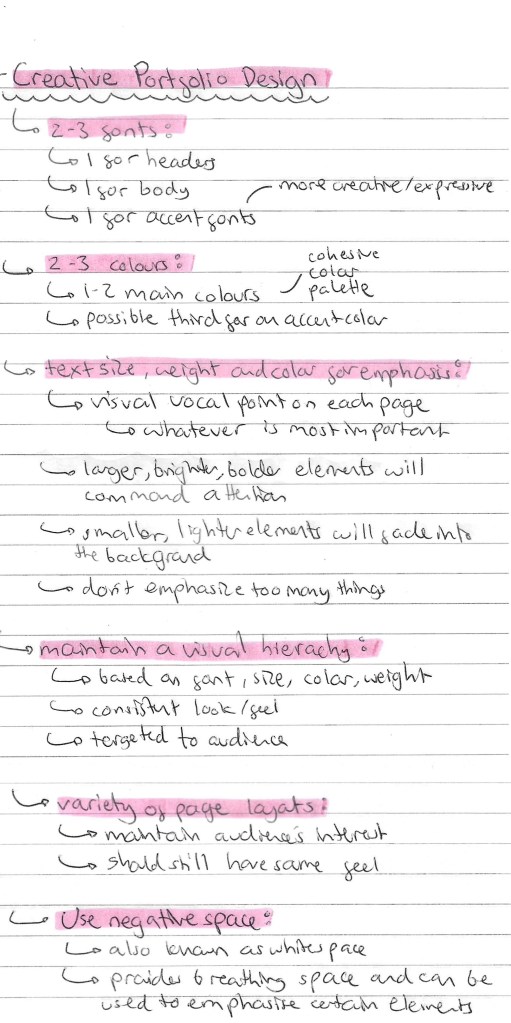 Creative Portfolio Design
2-3 fonts:
1 for headers
1 for body
more creative/expressive
1 for accent fonts
2-3 colours:
cohesive
color
palette
1-2 main colours
possible third for an accent color
text size, weight and color for emphasis:
visual vocal point on each page
whatever is most important
larger, brighter, bolder elements will
command attention
smaller, lighter elements will fade into
the background
don't emphasize too many things
maintain a visual hierachy:
based on font, size, color, weight
consistent look/feel
targeted to audience
variety of page layouts:
maintain audience's interest
should still have same feel
Use negative space:
also known as whitespace
provides breathing space and can be
used to emphasise certain elements